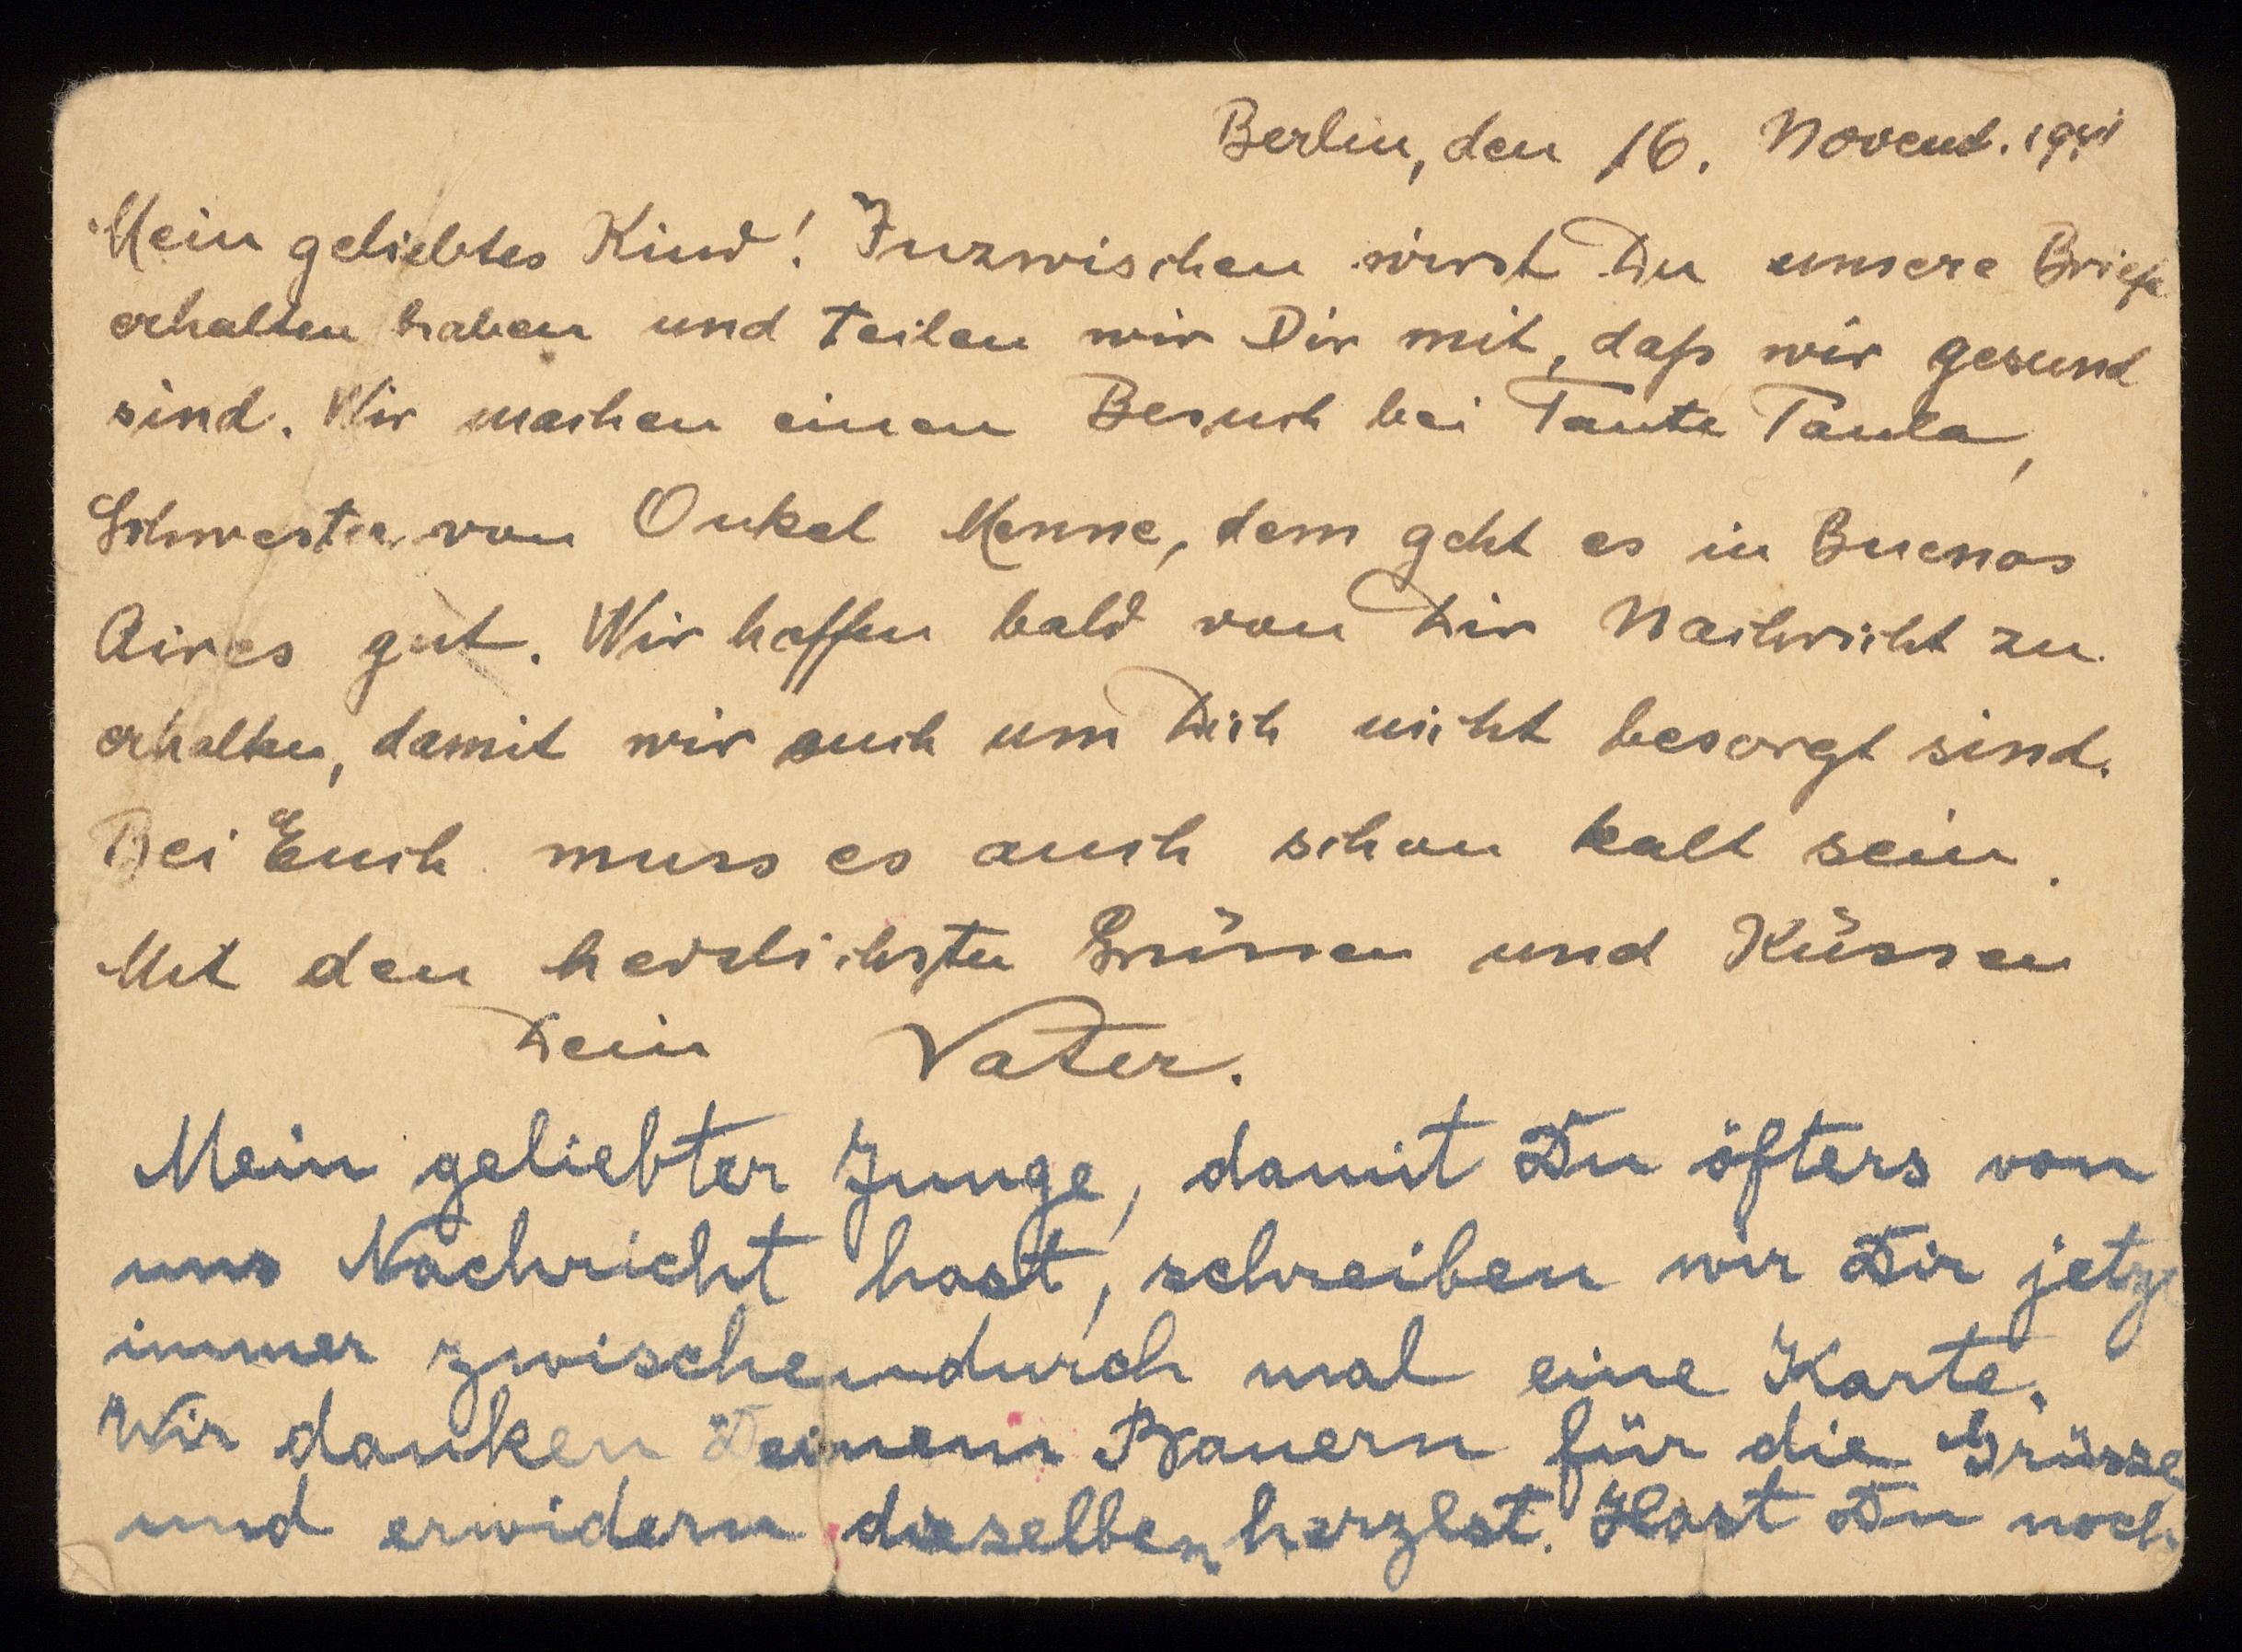 Berlin, den 16. Novemb. 1941
Mein geliebtes Kind! Inzwischen wirst Du unsere Briefe
erhalten haben und teilen wir Dir mit, daß wir gesund
sind. Wir machen einen Besuch bei Tante Paula,
Schwester von Onkel Menne, dem geht es in Buenos
Aires gut. Wir hoffen bald von Dir Nachricht zu
erhalten, damit wir auch um Dich nicht besorgt sind.
Bei Euch muss es auch schon kalt sein.
Mit den herzlichsten Grüssen und Küssen
Dein Vater.
Mein geliebter Junge, damit Du öfters von
uns Nachricht hast, schreiben wir Dir jetzt
immer zwischendurch mal eine Karte.
Wir danken Deinem Bauern für die Grüsse
und erwidern dieselben herzlst. Hast Du noch